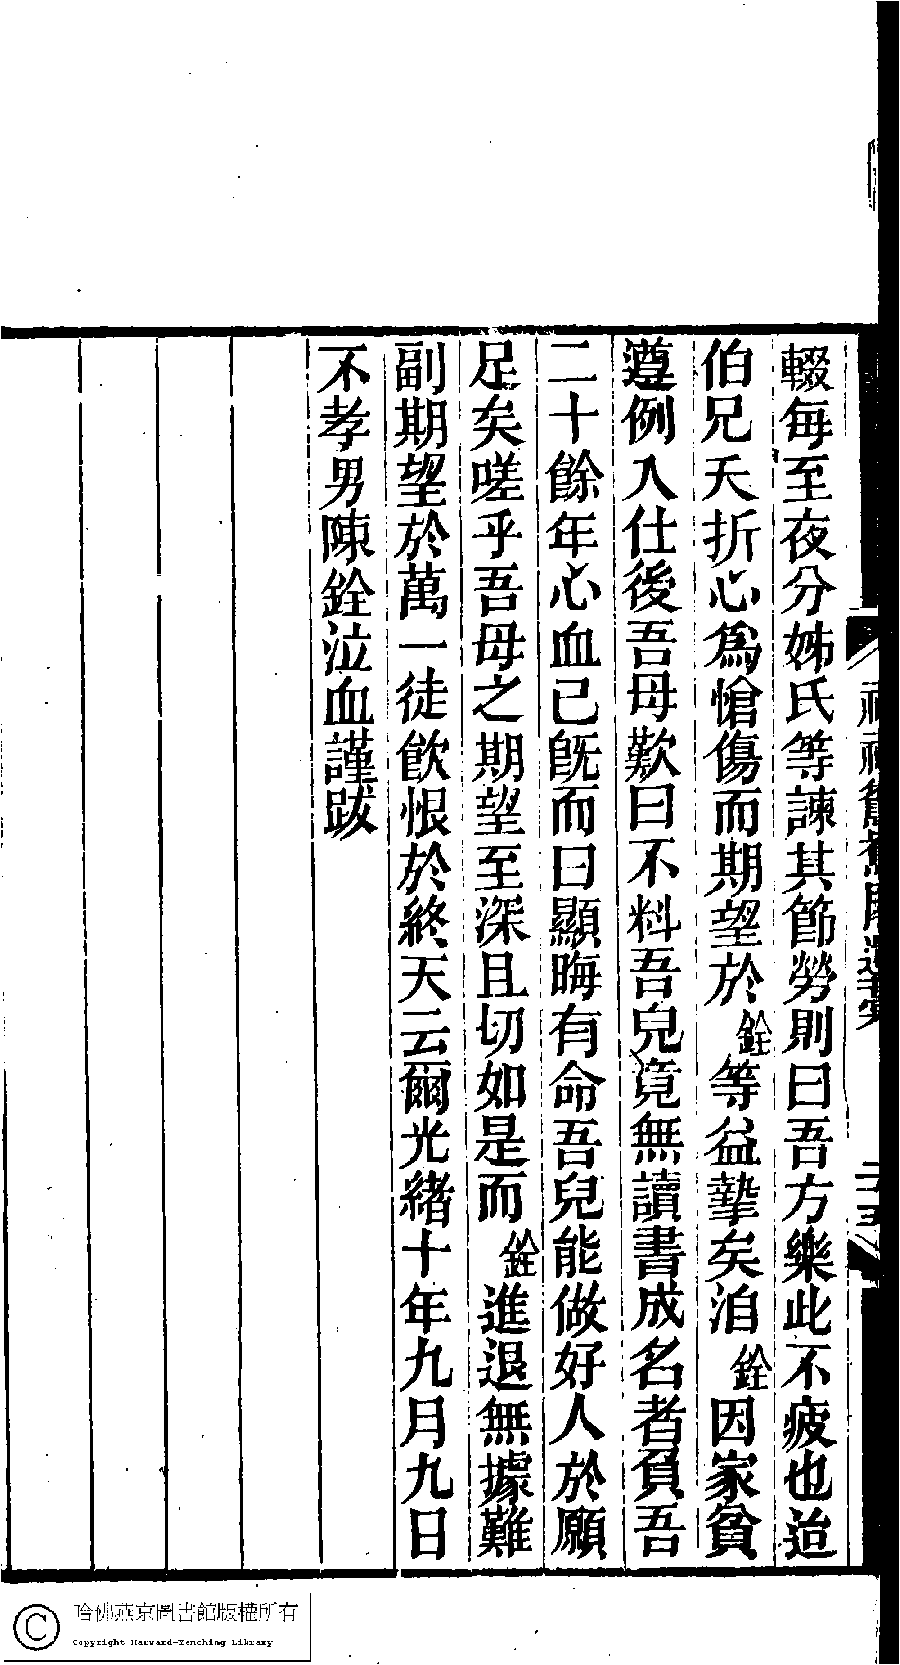 輟每至夜分姊氏等諫其節勞則曰吾方樂此不疲也迨
伯兄夭折心爲愴傷而期望於銓等益摯矣洎銓因家貧
遵例入仕後吾母歎曰不料吾兒竟無讀書成名者負吾
二十餘年心血已旣而曰顯晦有命吾兒能做好人於願
足矣嗟乎吾母之期望至深且切如是而銓進退無據難
副期望於萬一徒飮恨於終天云爾光緖十年九月九日
不孝男陳銓泣血謹跋
哈佛燕京圖書館版權所有
Copyright Harvard-Yenching Library